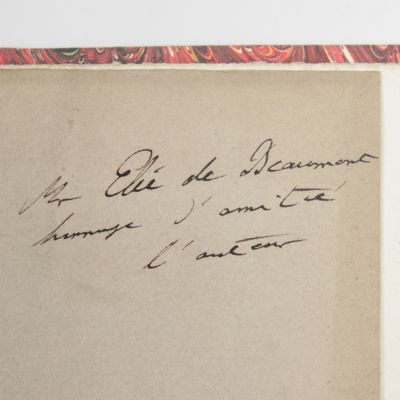 Mr Elie de Beaumont
hommage d'amitié
l'auteur